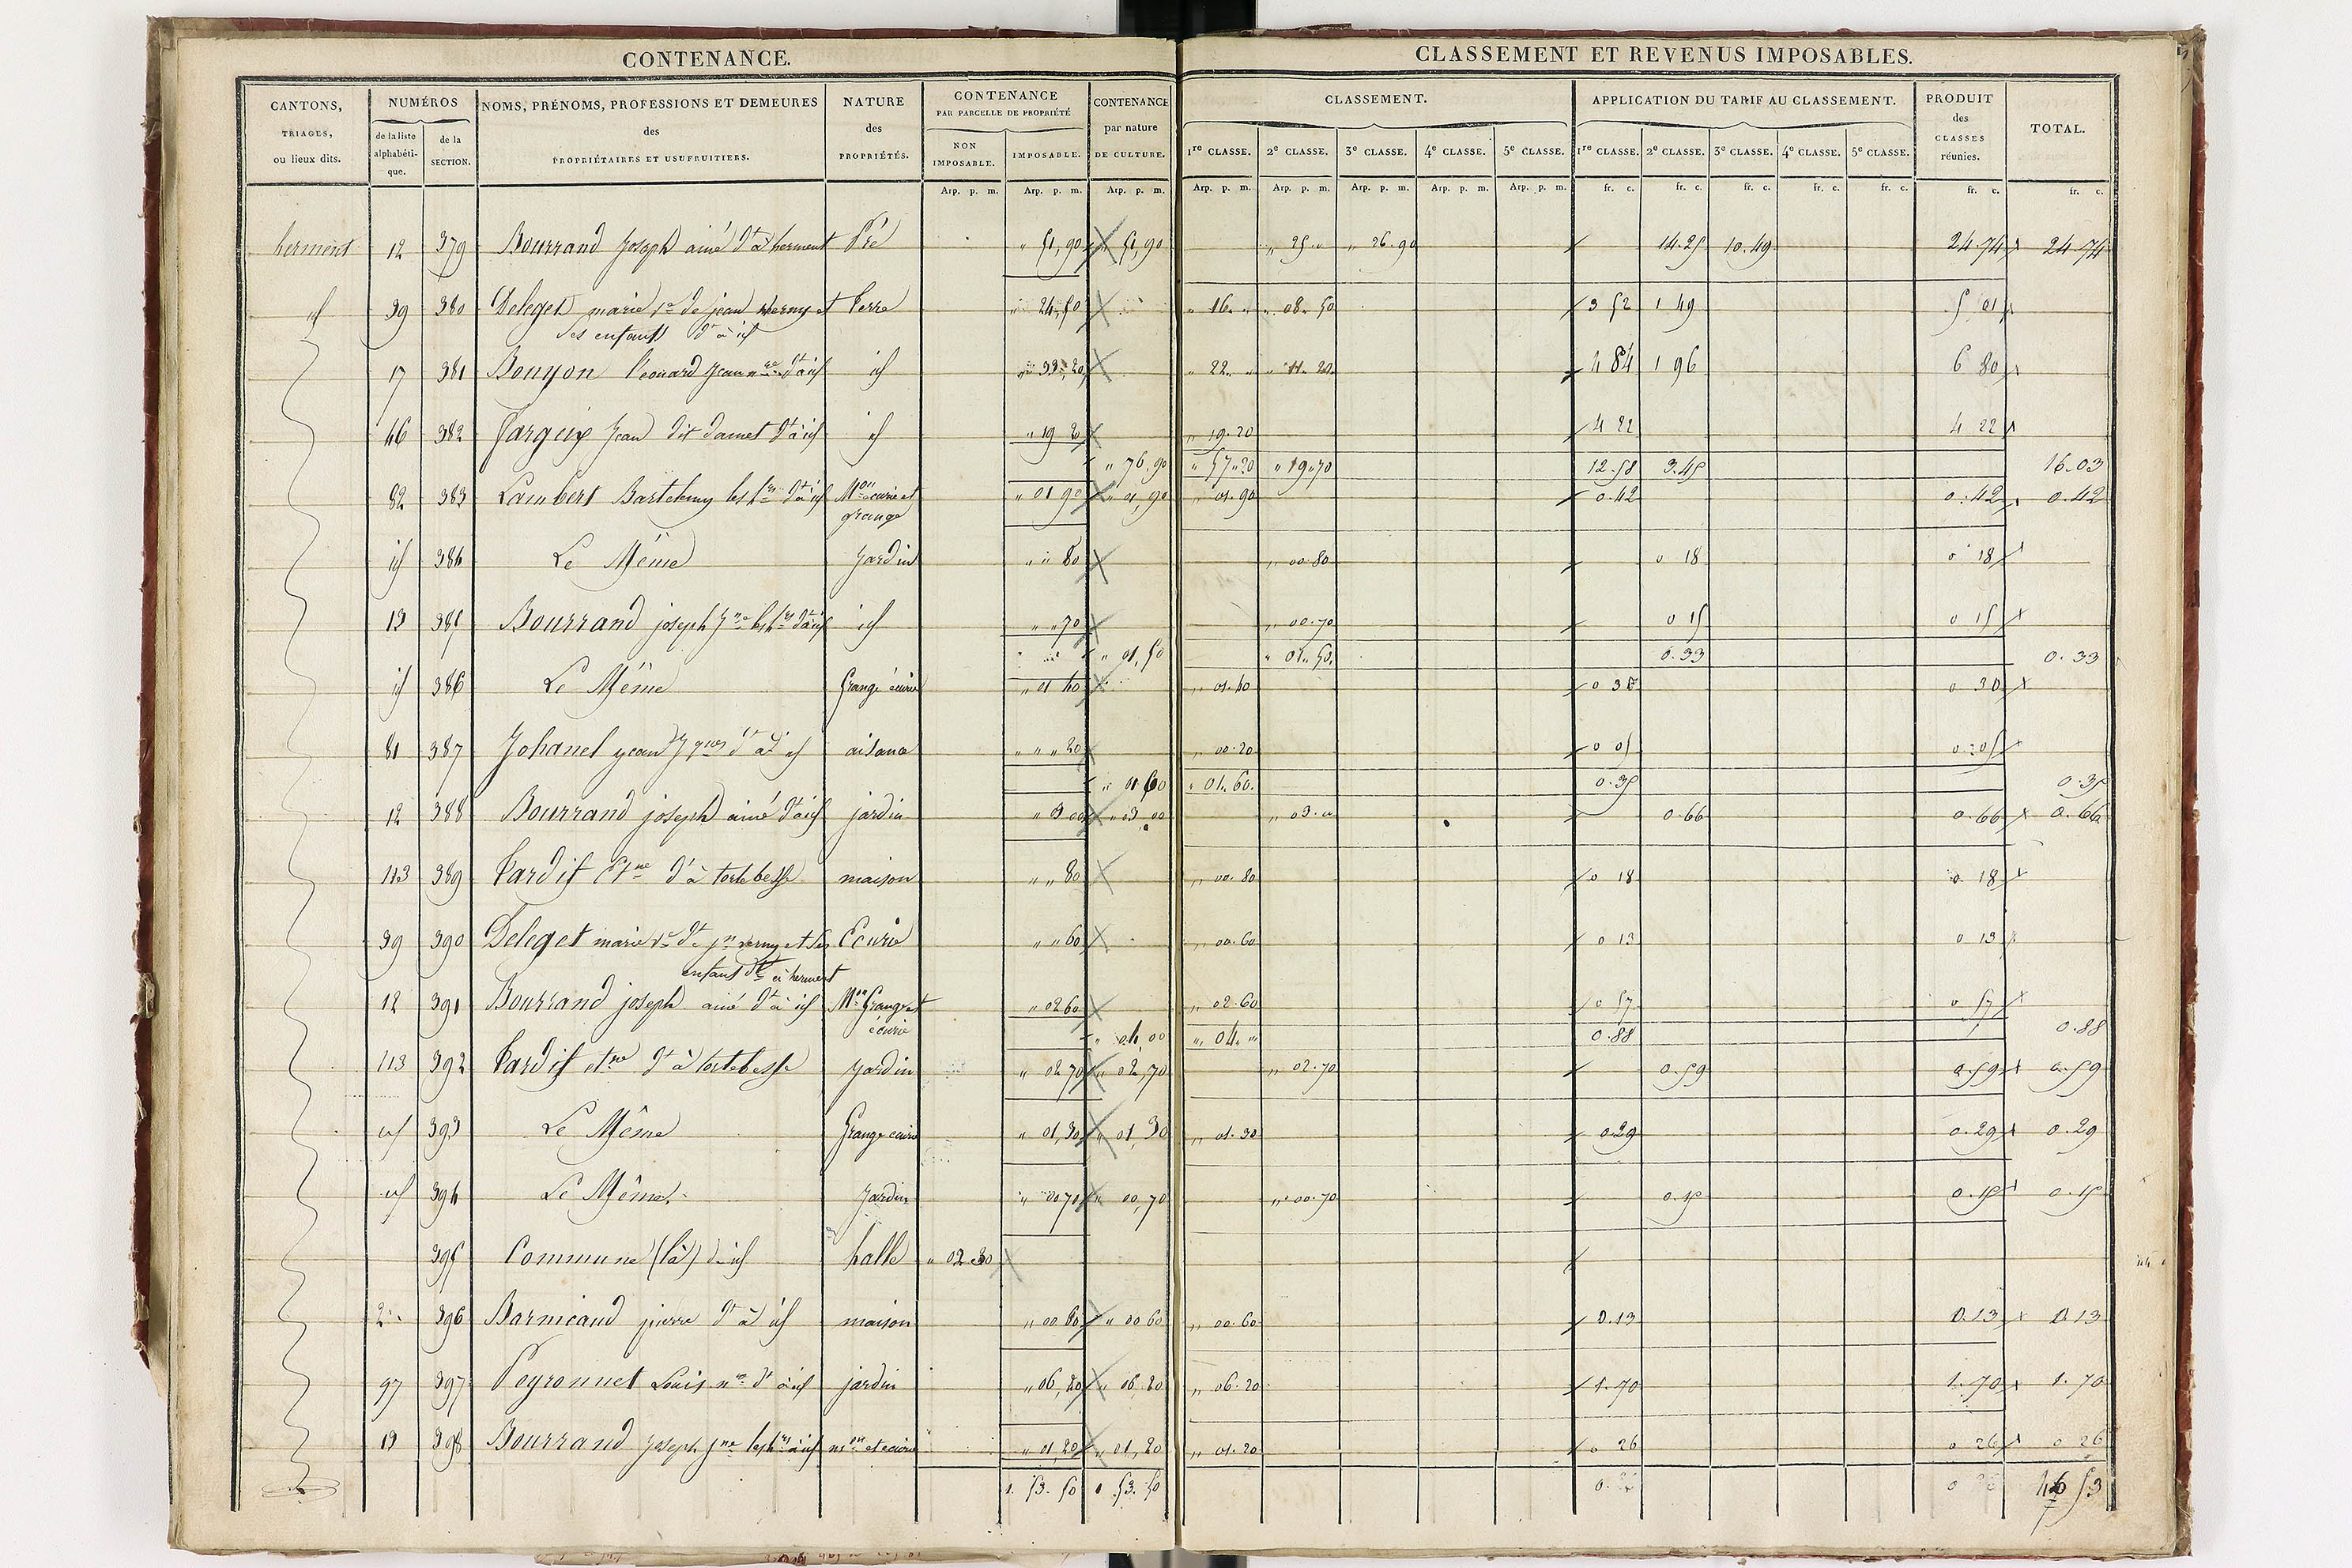 CONTENANCE.
CLASSEMENT ET REVENUS IMPOSABLES.
CANTONS, TRIAGES, ou lieux dits.
NUMÉROS
de la liste alphabéti- que.
de la SECTION.
NOMS, PRÉNOMS, PROFESSIONS ET DEMEURES des PROPRIÉTAIRES ET USUFRUITIERS.
NATURE des PROPRIÉTÉS.
CONTENANCE PAR PARCELLE DE PROPRIÉTÉ
NON IMPOSABLE.
IMPOSABLE.
CONTENANCE par nature DE CULTURE.
CLASSEMENT.
1re CLASSE. 2e CLASSE. 3e CLASSE. 4e CLASSE. 5e CLASSE.
APPLICATION DU TARIF AU CLASSEMENT.
1re CLASSE. 2e CLASSE. 3e CLASSE. 4e CLASSE. 5e CLASSE.
PRODUIT des CLASSES réunies.
TOTAL.
Arp. p. m. Arp. p. m. Arp. p. m. Arp. p. m. Arp. p. m. Arp. p. m. Arp. p. m. Arp. p. m. fr. c. fr. c. fr. c. fr. c. fr. c. fr. c. fr. c.
herment 12 379 Bourrand Joseph ainé dt à herment Pré " 51,90 " 51,90 " 25 " " 26.90 14.25 10.49 24.74 24 74
id 39 380 Deleget marie ve de jean verny et terre " 24,50 " 16 " " 08.50 3 52 1 49 5 01
ses enfants dt à id
17 381 Bouyon léonard Jean dt à id id " 33 20 " 22 " " 11.20 4 84 1 96 6 80
46 382 Jargeix Jean dit damet dt à id id " 19 20 " 19.20 4 22 4 22
" 76,90 " 57.20 " 19.70 12.58 3.45 16.03
82 383 Lambert Bartelemy les hrs dt à id Mon écurie et " 01 90 " 01,90 " 01.90 0.42 0.42 0.42
grange
id 384 Le Même Jardin " " 80 " 00.80 0 18 0 18
13 385 Bourrand joseph Jne les hrs dt à id id " " 70 " 00.70 0 15 0 15
" 01,50 " 01.50 0.33 0.33
id 386 Le Même Grange écurie " 01 40 " 01.40 0 30 0 30
81 387 Johanel jean Jques dt à id aisance " " 20 " 00.20 0 05 0.05
" 01 60 " 01.60 0.35 0.35
12 388 Bourrand joseph ainé dt à id jardin " 03 00 " 03,00 " 03 " 0.66 0.66 0.66
113 389 Tardif Etne dt à tortebesse maison " " 80 " 00.80 0 18 0 18
39 390 Deleget marie ve dt jn verny et ses Ecurie " " 60 " 00.60 0 13 0 13
enfans dt à herment
12 391 Bourrand joseph ainé dt à id Mon Grange et " 02 60 " 02.60 0 57 0 57
écurie " 04,00 " 04 " 0.88 0.88
113 392 Tardif etne dt à tortebesse Jardin " 02 70 " 02,70 " 02.70 0.59 0.59 0.59
id 393 Le Même Grange écurie " 01,30 " 01,30 " 01.30 0.29 0.29 0.29
id 394 Le Même Jardin " 00 70 " 00,70 " 00.70 0.15 0.15 0.15
395 Commune (la) d'id halle " 02 80
2 396 Barmicaud pierre dt à id maison " 00 60 " 00 60 " 00.60 0.13 0.13 0.13
97 397 Peyronnet Louis nre dt à id jardin " 06,20 " 06,20 " 06.20 1.70 1.70 1.70
13 398 Bourrand joseph jne les hrs à id mon et écurie " 01,20 " 01,20 " 01.20 0 26 0 26 0 26
1. 53. 50 1. 53. 50 46 53